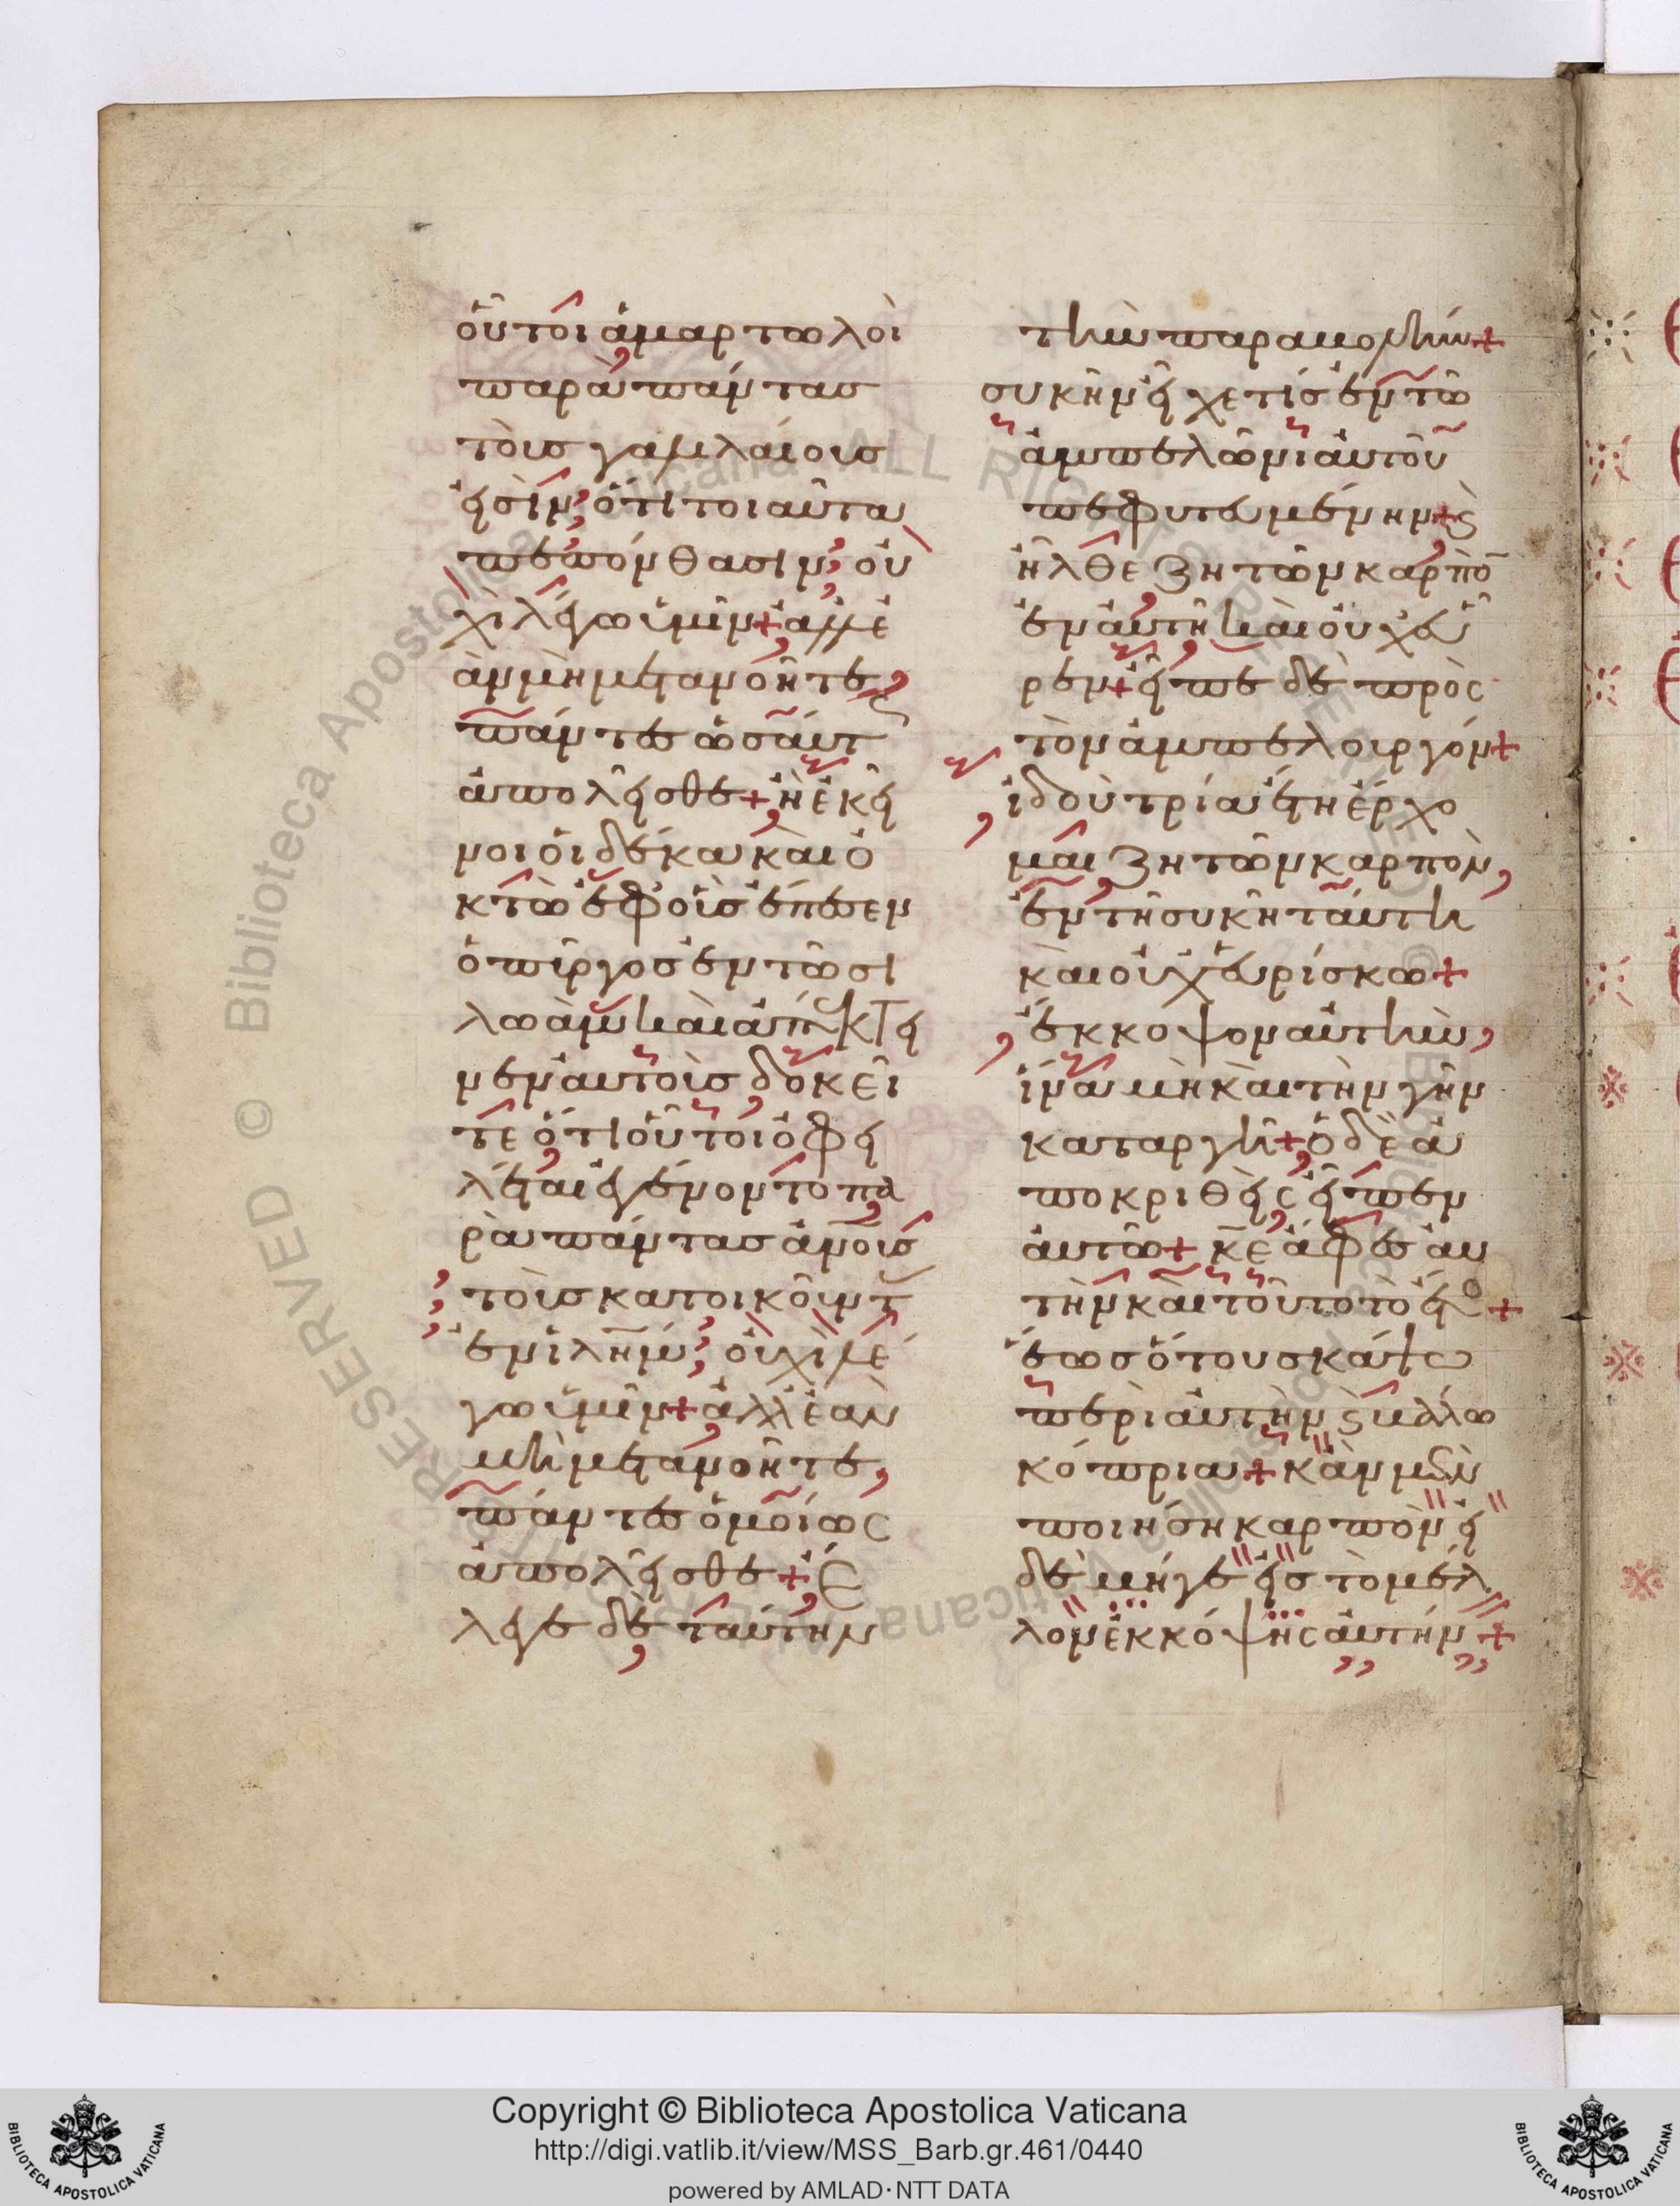 οὗτοι ἁμαρτωλοὶ
παρὰ πάντας
τοὺς γαλιλαίους
εἰσίν; ὅτι τοιαῦτα
πεπόνθασιν; οὐ
χὶ λέγω ὑμῖν + ἀλλ ἐ
ὰν μὴ μετανοῆτε,
πάντες ὡσαύτ
ἀπολεῖσθε + ἢ ἐκεῖ
νοι οἱ δέκα καὶ ὀ
κτὼ ἐφ οὓς ἔπεσεν
ὁ πύργος ἐν τῶ σι
λωὰμ καὶ ἀπέκτει
νεν αὐτοὺς δοκεῖ
τε ὅτι οὗτοι ὀφει
λέται ἐγένοντο πα
ρὰ πάντας ἀνοὺς
τοὺς κατοικοῦντ
ἐν ἱλημ; οὐχὶ λέ
γω ὑμῖν + ἀλλ ἐὰν
μὴ μετανοῆτε,
πάντες ὁμοίως
ἀπολεῖσθε + Ἔ
λεγε δὲ ταύτην
τὴν παραβολήν +
συκῆν εἶχε τὶς ἐν τῶ
ἀμπελῶνι αὐτοῦ
πεφυτευμένην + ϛ
ἦλθε ζητῶν καρπὸ
ἐν αὐτῆ καὶ οὐχ εὗ
ρεν + εἶπε δὲ πρὸς
τὸν ἀμπελουργόν +
ἰδοὺ τρία ἔτη ἔρχο
μαι ζητῶν καρπὸν,
ἐν τῆ συκῆ ταύτη
καὶ οὐχ εὑρίσκω +
ἔκκοψον αὐτὴν,
ἵνα μὴ καὶ τὴν γῆν
καταργῆ + ὁ δὲ ἀ
ποκριθεὶς εἶπεν
αὐτῶ + κε ἄφες αὐ
τὴν καὶ τοῦτο τὸ ἔτο +
ἕως ὅτου σκάψω
περὶ αὐτὴν ϛ βάλλω
κόπρια + κἂν μὲν
ποιήση καρπὸν εἰ
δὲ μήγε εἰς τὸ μέλ
λον ἐκκόψης αὐτήν +
Copyright © Biblioteca Apostolica Vaticana
http://digi.vatlib.it/view/MSS_Barb.gr.461/0440
powered by AMLAD·NTT DATA